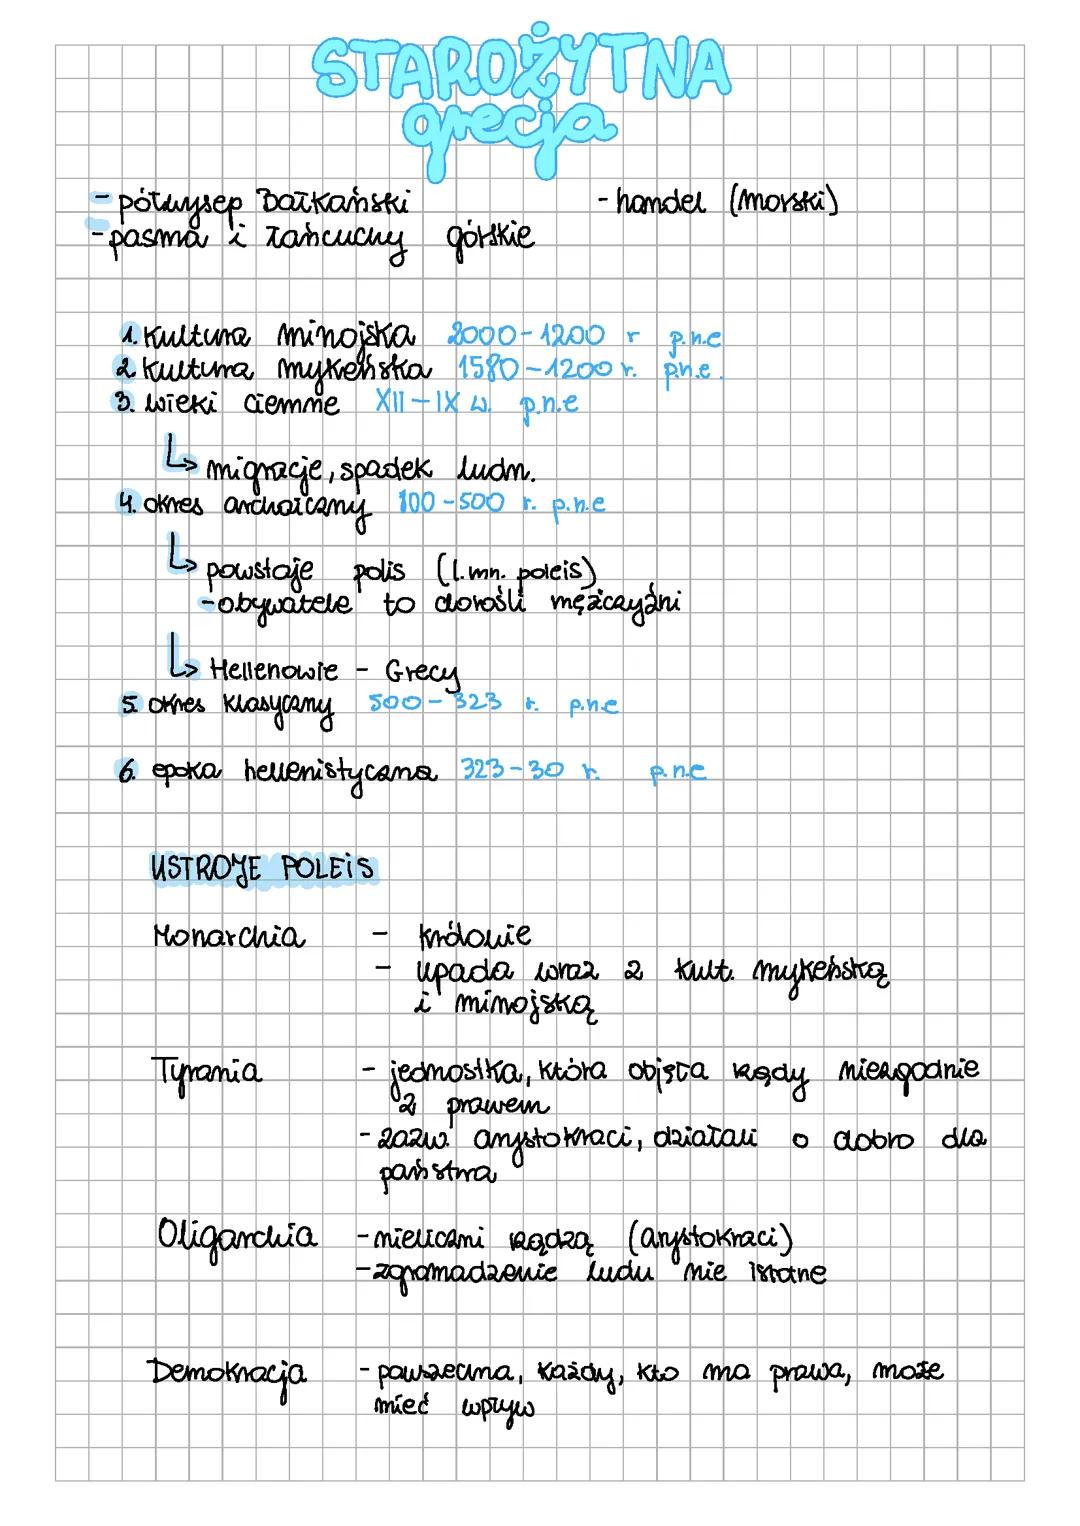 STAROŻYTNA
grecja
- półwysep Bałkański - handel (morski)
- pasma i łańcuchy górskie
1. Kultura minojska 2000-1200 r p.n.e
2 kultura mykeńska 1580-1200 r. p.n.e.
3. wieki ciemne XII-IX w. p.n.e
↳ migracje, spadek ludn.
4. okres archaiczny 100-500 r. p.n.e
↳ powstaje polis (l.mn. poleis)
- obywatele to dorośli mężczyźni
↳ Hellenowie - Grecy
5. okres klasyczny 500-323 r. p.n.e
6. epoka hellenistyczna 323-30 r. p.n.e
USTROJE POLEiS
Monarchia - królowie
- upada wraz z kult. mykeńską
i minojską
Tyrania - jednostka, która objęła rządy niezgodnie
z prawem
- zazw. arystokraci, działali o dobro dla
państwa
Oligarchia - nieliczni rządzą (arystokraci)
- zgromadzenie ludu nie istotne
Demokracja - powszechna, każdy, kto ma prawa, może
mieć wpływ